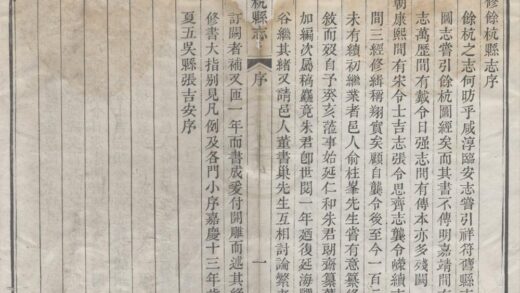 修餘杭縣志序
餘杭之志何昉乎咸淳臨安志嘗引祥符舊縣
圖志嘗引餘杭圖經矣而其書不傳明嘉靖間有
志萬歷間有戴令日强志間有傳本亦多殘闕
朝康熙間有宋令士吉志張令思齊志龔令嶸續志
間三經修緝稱翔實矣顧自龔令後至今一百
未有續初繼業者邑人俞桂峯先生嘗有意纂
敘而歿自予癸亥蒞事始延仁和朱君朗齋纂
加編次屬稿竟朱君卽世閱一年迺復延海鹽
谷繼其緒又請邑人董書巢先生互相討論繁
杭縣志 序 一
訂闕者補又匝一年而書成爰付開雕而述其緣
修書大指別見凡例及各門小序嘉慶十三年歲
夏五吳縣張吉安序